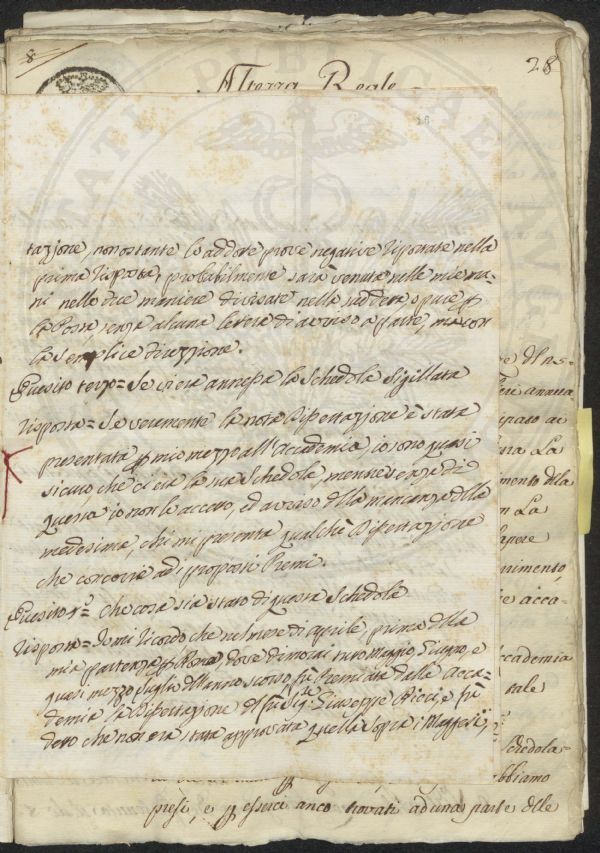 8
28
Altezza Reale
16
tazione, nonostante le addote prove negative riportate nella
prima risposta, probabilmente sarà venuta nelle mie ma-
ni nelle due maniere divisate nella suddeta, o pure p
la Posta, senza alcuna letera di avviso a parte, ma con
la semplice direzzione.
Quesito terzo = Se vi era annessa la Schedola Sigillata
risposta = Se veramente la nota Dissertazione è stata
presentata p mio mezzo all'Accademia, io sono quasi
sicuro che ci era la sua Schedola, mentre senza di
questa io non le acceto, ed avviso della mancanza della
medesima, chi mi presenta qualche Dissertazione
che concorre ad i proposti Premi.
Quesito 4.º che cosa sia stato di questa Schedola
risposta = Io mi ricordo che nel mese di Aprile, prima della
mia partenza p Roma, dove dimorai tuto Maggio, Giugno, e
quasi mezzo Luglio dell'anno scorso, fù Premiata dalla Acca-
demia la Dissertazione del fù Sig.re Giuseppe Ricci, e fù
deto che non era stata approvata quella sopra i Maggesi,
annessa
La
mento dela
La
sapere
nimento,
acca-
ccademia
tale
Schedola
abbiamo
presi, e p esserci anco trovati ad una parte delle